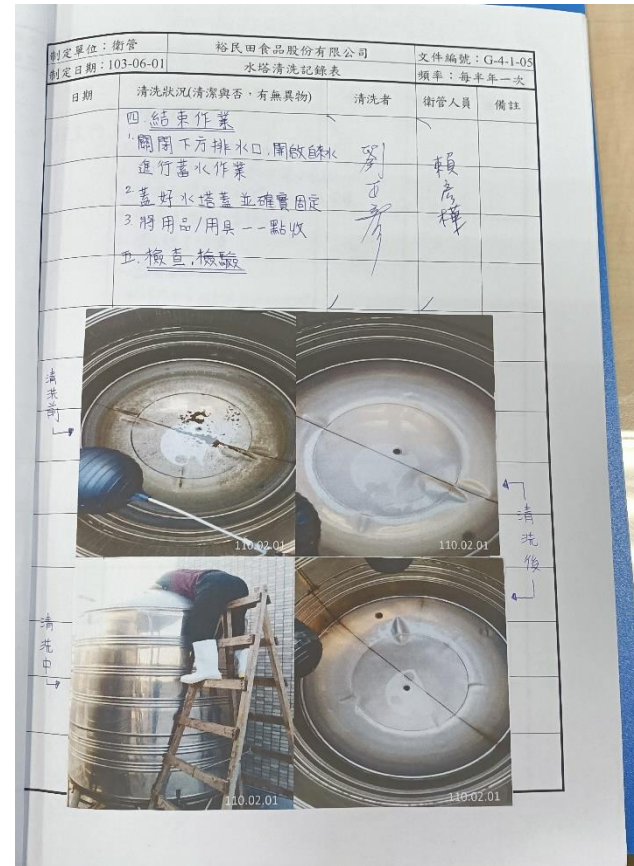 制定單位：衛管
裕民田食品股份有限公司
文件編號：G-4-1-05
制定日期：103-06-01
水塔清洗記錄表
頻率：每半年一次
日期
清洗狀況(清潔與否，有無異物)
清洗者
衛管人員
備註
四.結束作業
1.關閉下方排水口,開啟自來水
進行蓄水作業
2.蓋好水塔蓋並確實固定
3.將用品/用具一一點收
五.檢查,檢驗
賴彥樺
清洗前
110.02.01
110.02.01
清洗後
清洗中
110.02.01
110.02.01